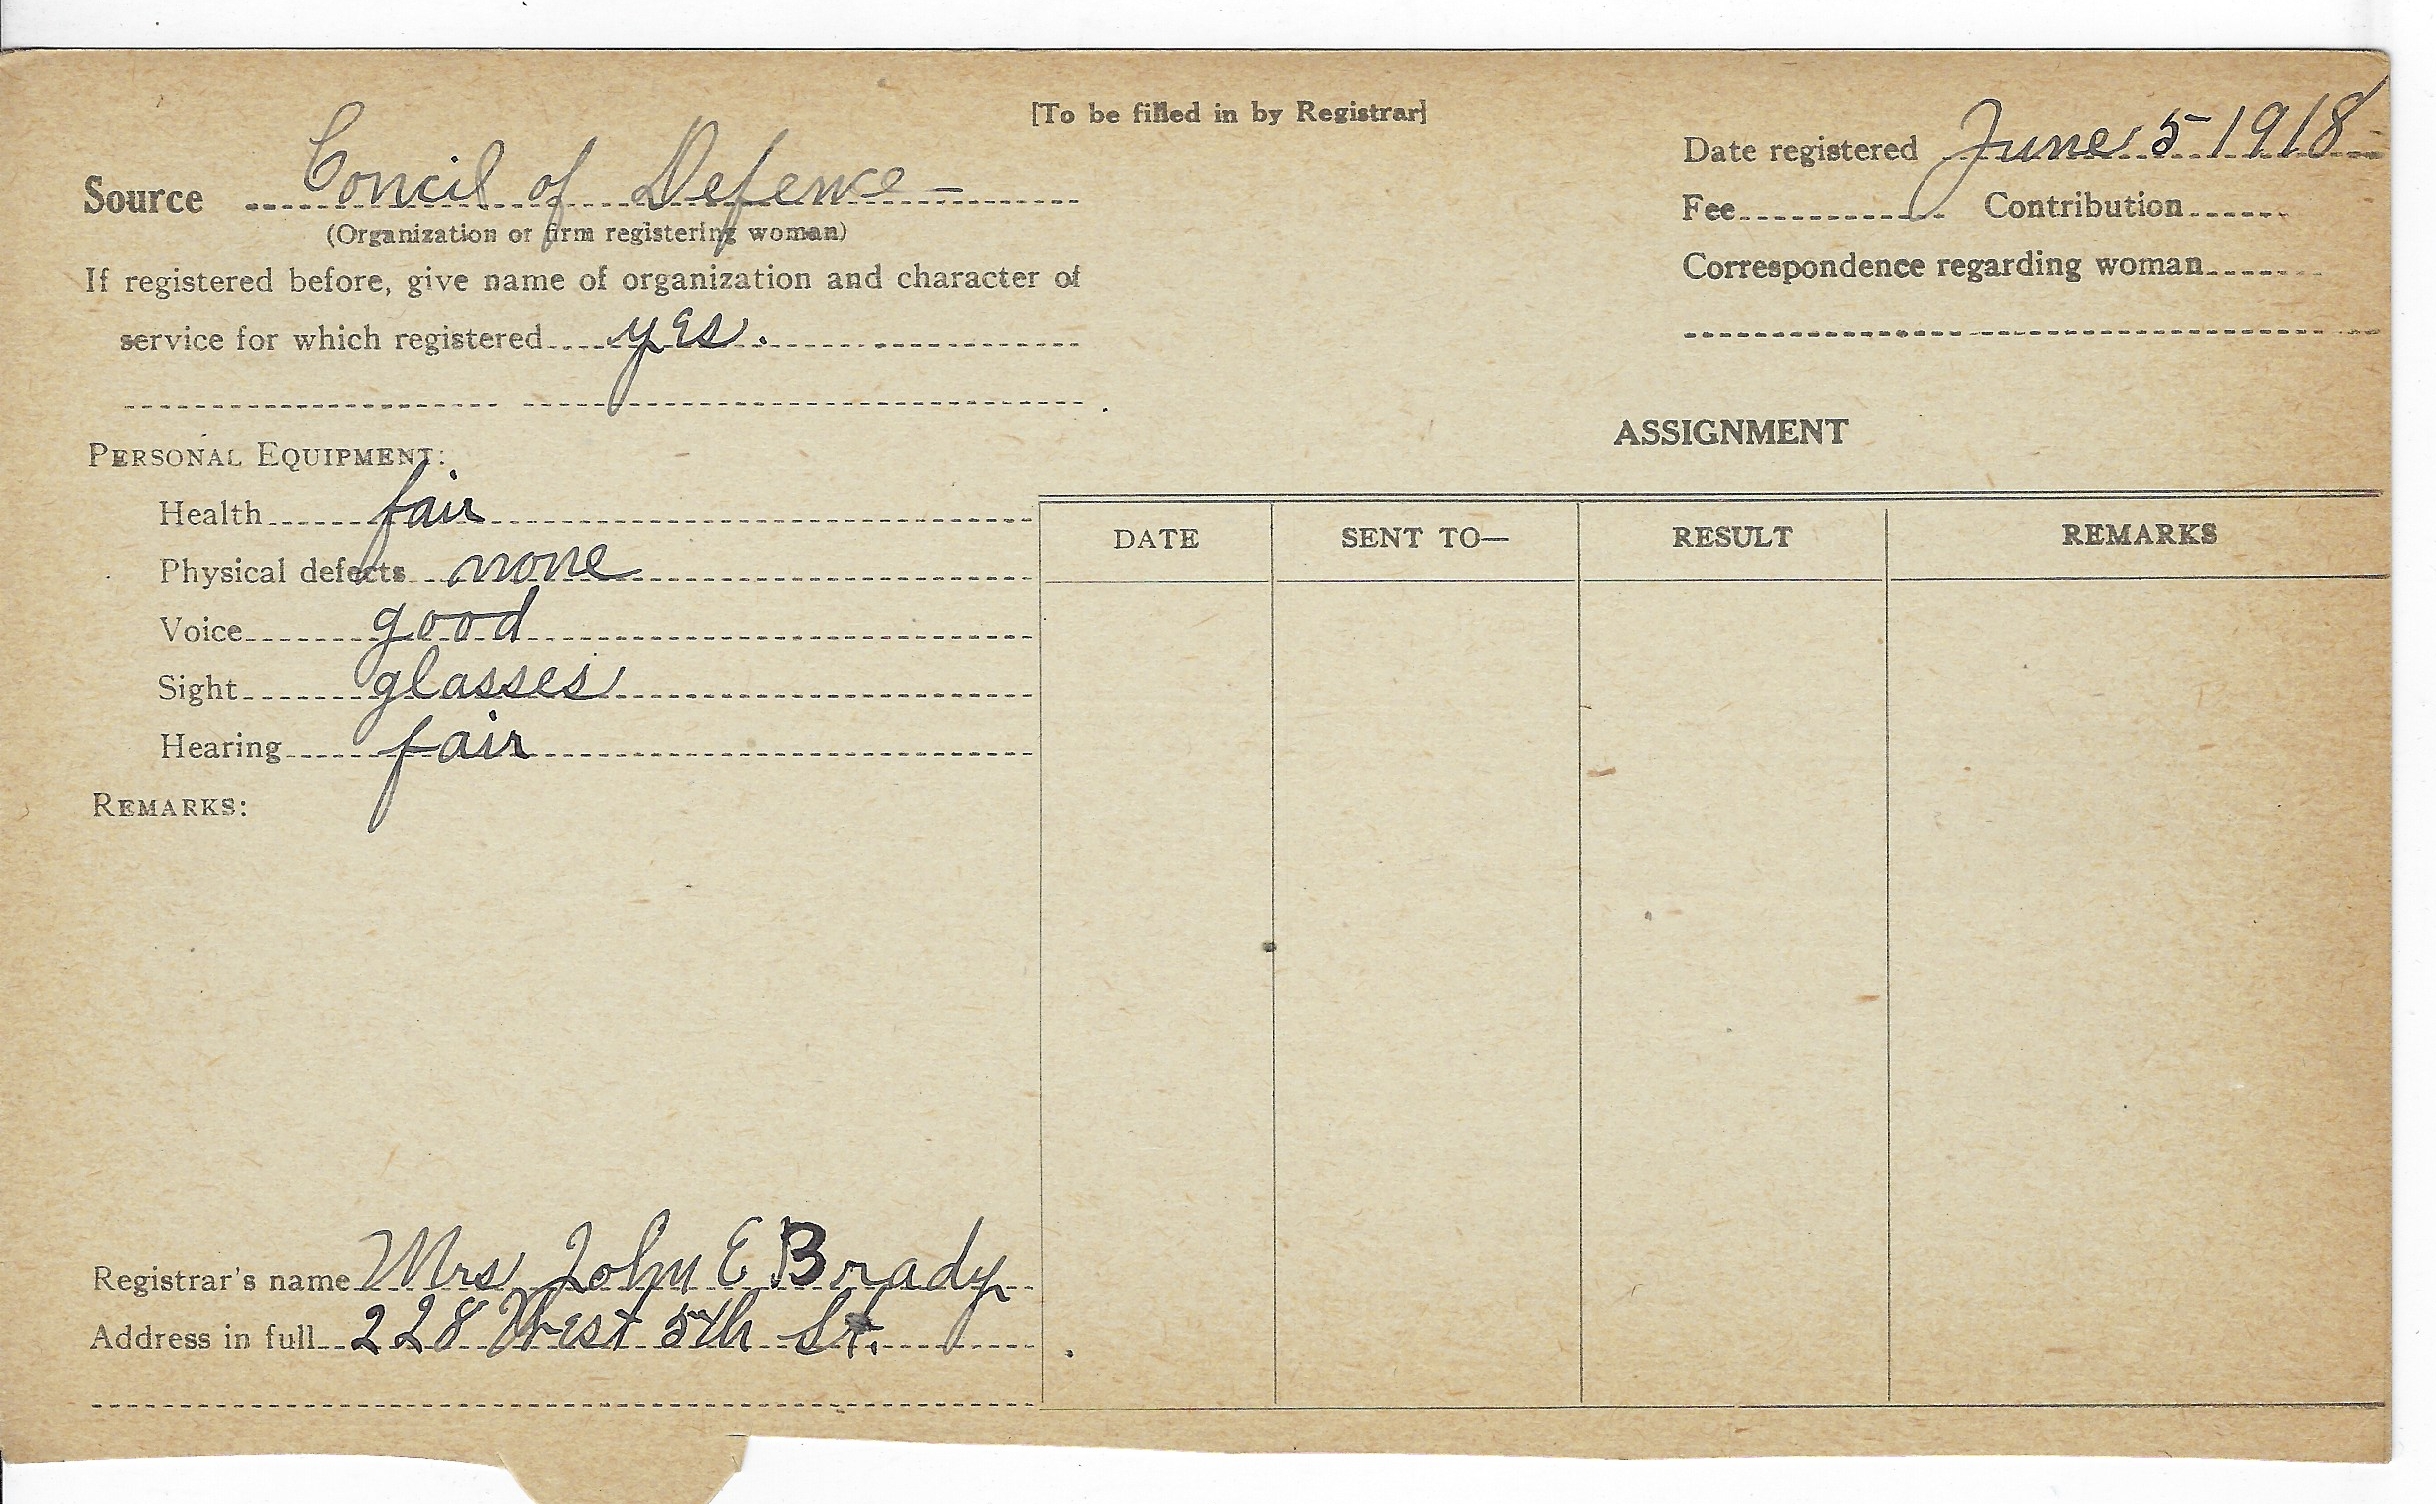 [To be filled in by Registrar]
Source Concil of Defence
(Organization or firm registering woman)
If registered before, give name of organization and character of
service for which registered yes.
Date registered June 5 1918
Fee Contribution
Correspondence regarding woman
PERSONAL EQUIPMENT:
Health fair
Physical defects none
Voice good
Sight glasses
Hearing fair
REMARKS:
ASSIGNMENT
DATE SENT TO— RESULT REMARKS
Registrar's name Mrs John E Brady
Address in full 228 West 5th St.